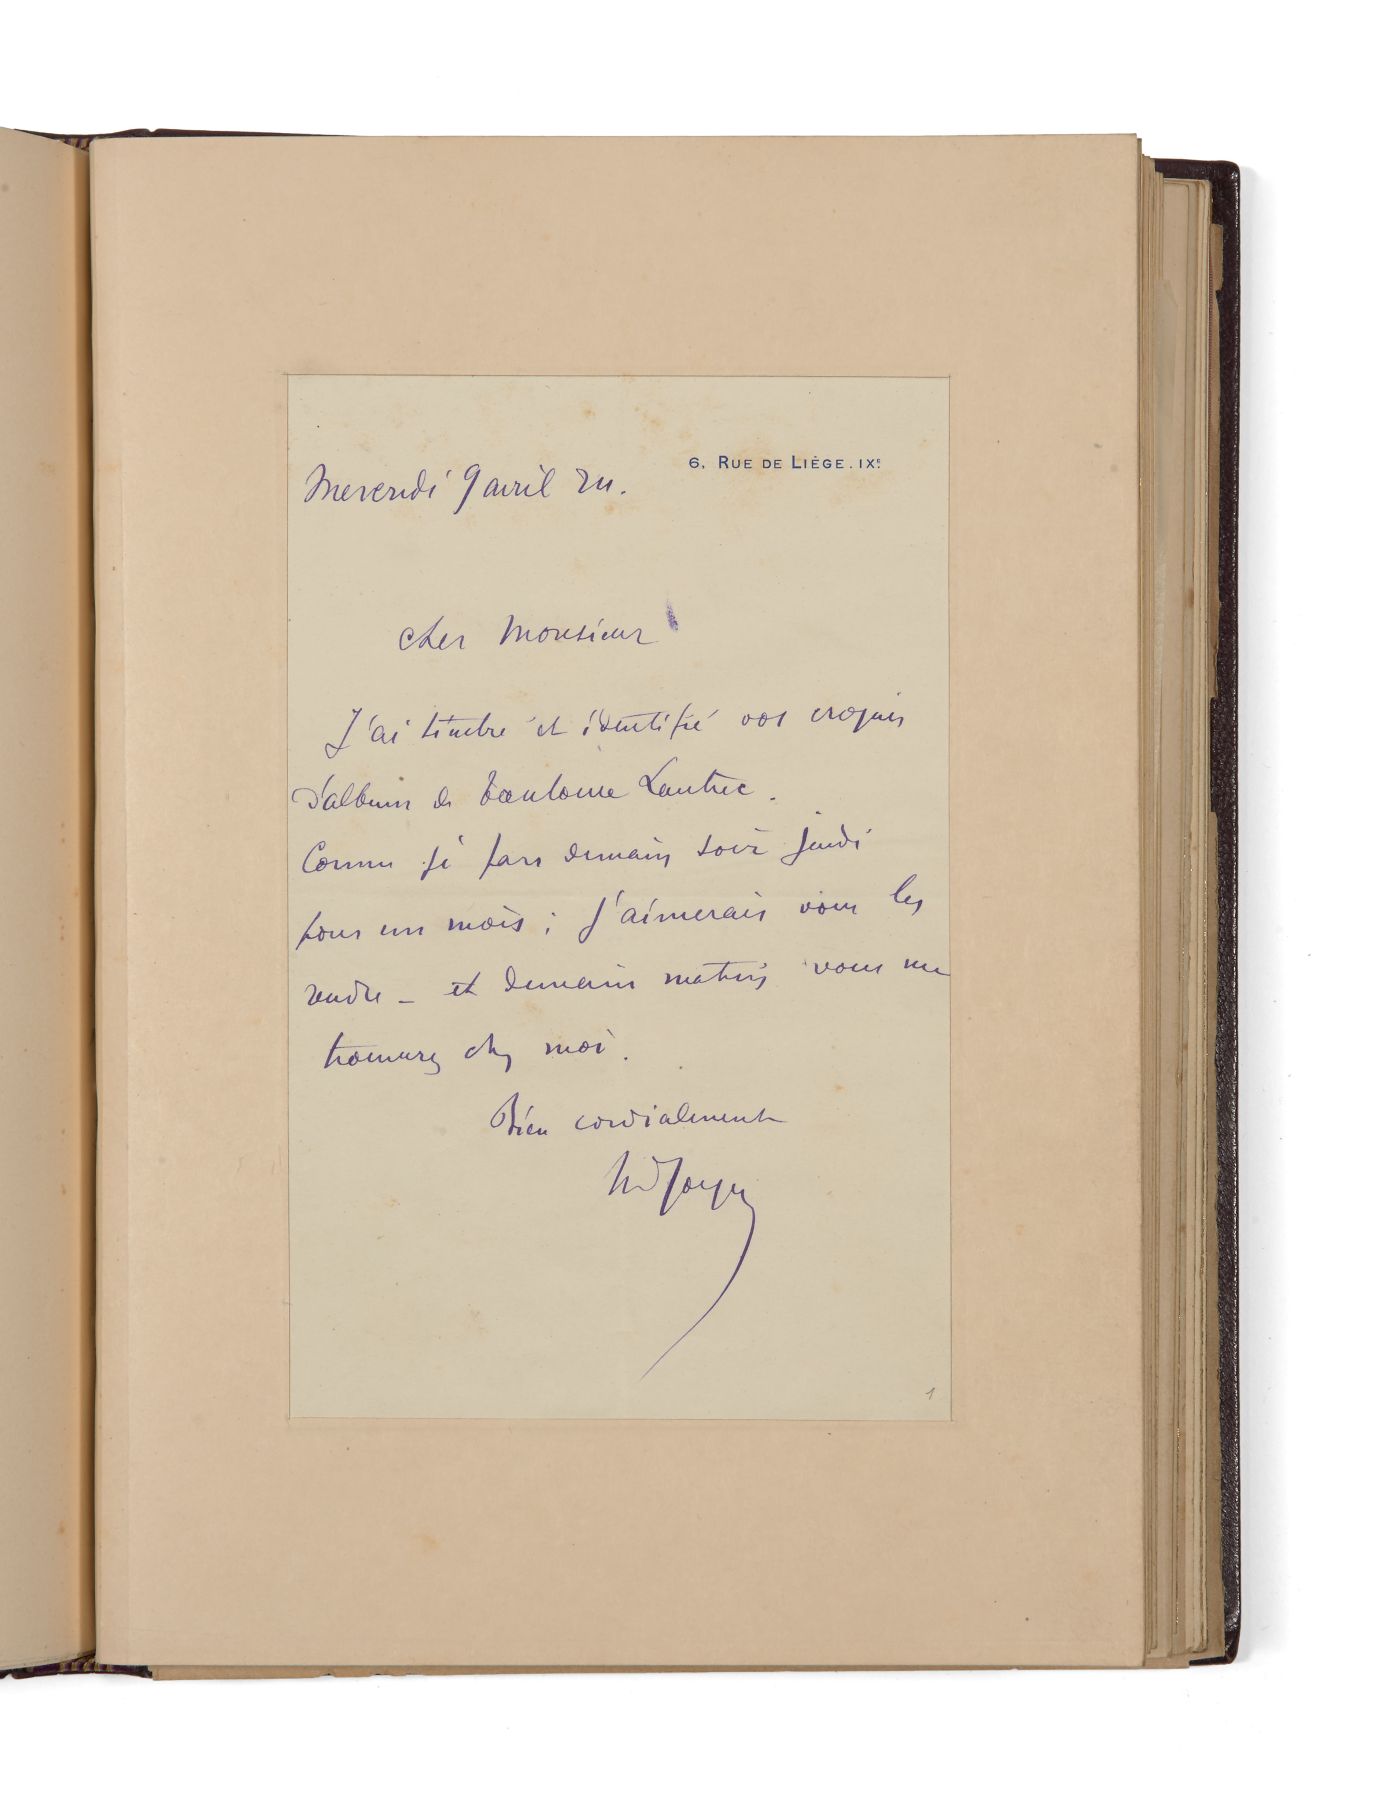 6, RUE DE LIÈGE. IXE
Mercredi 9 avril 24.
Cher Monsieur
J'ai timbré et identifié vos croquis
d'album de Toulouse Lautrec.
Comme je pars demain soir jeudi
pour un mois ; j'aimerais vous les
rendre - et demain matin vous me
trouverez chez moi.
Bien cordialement
1